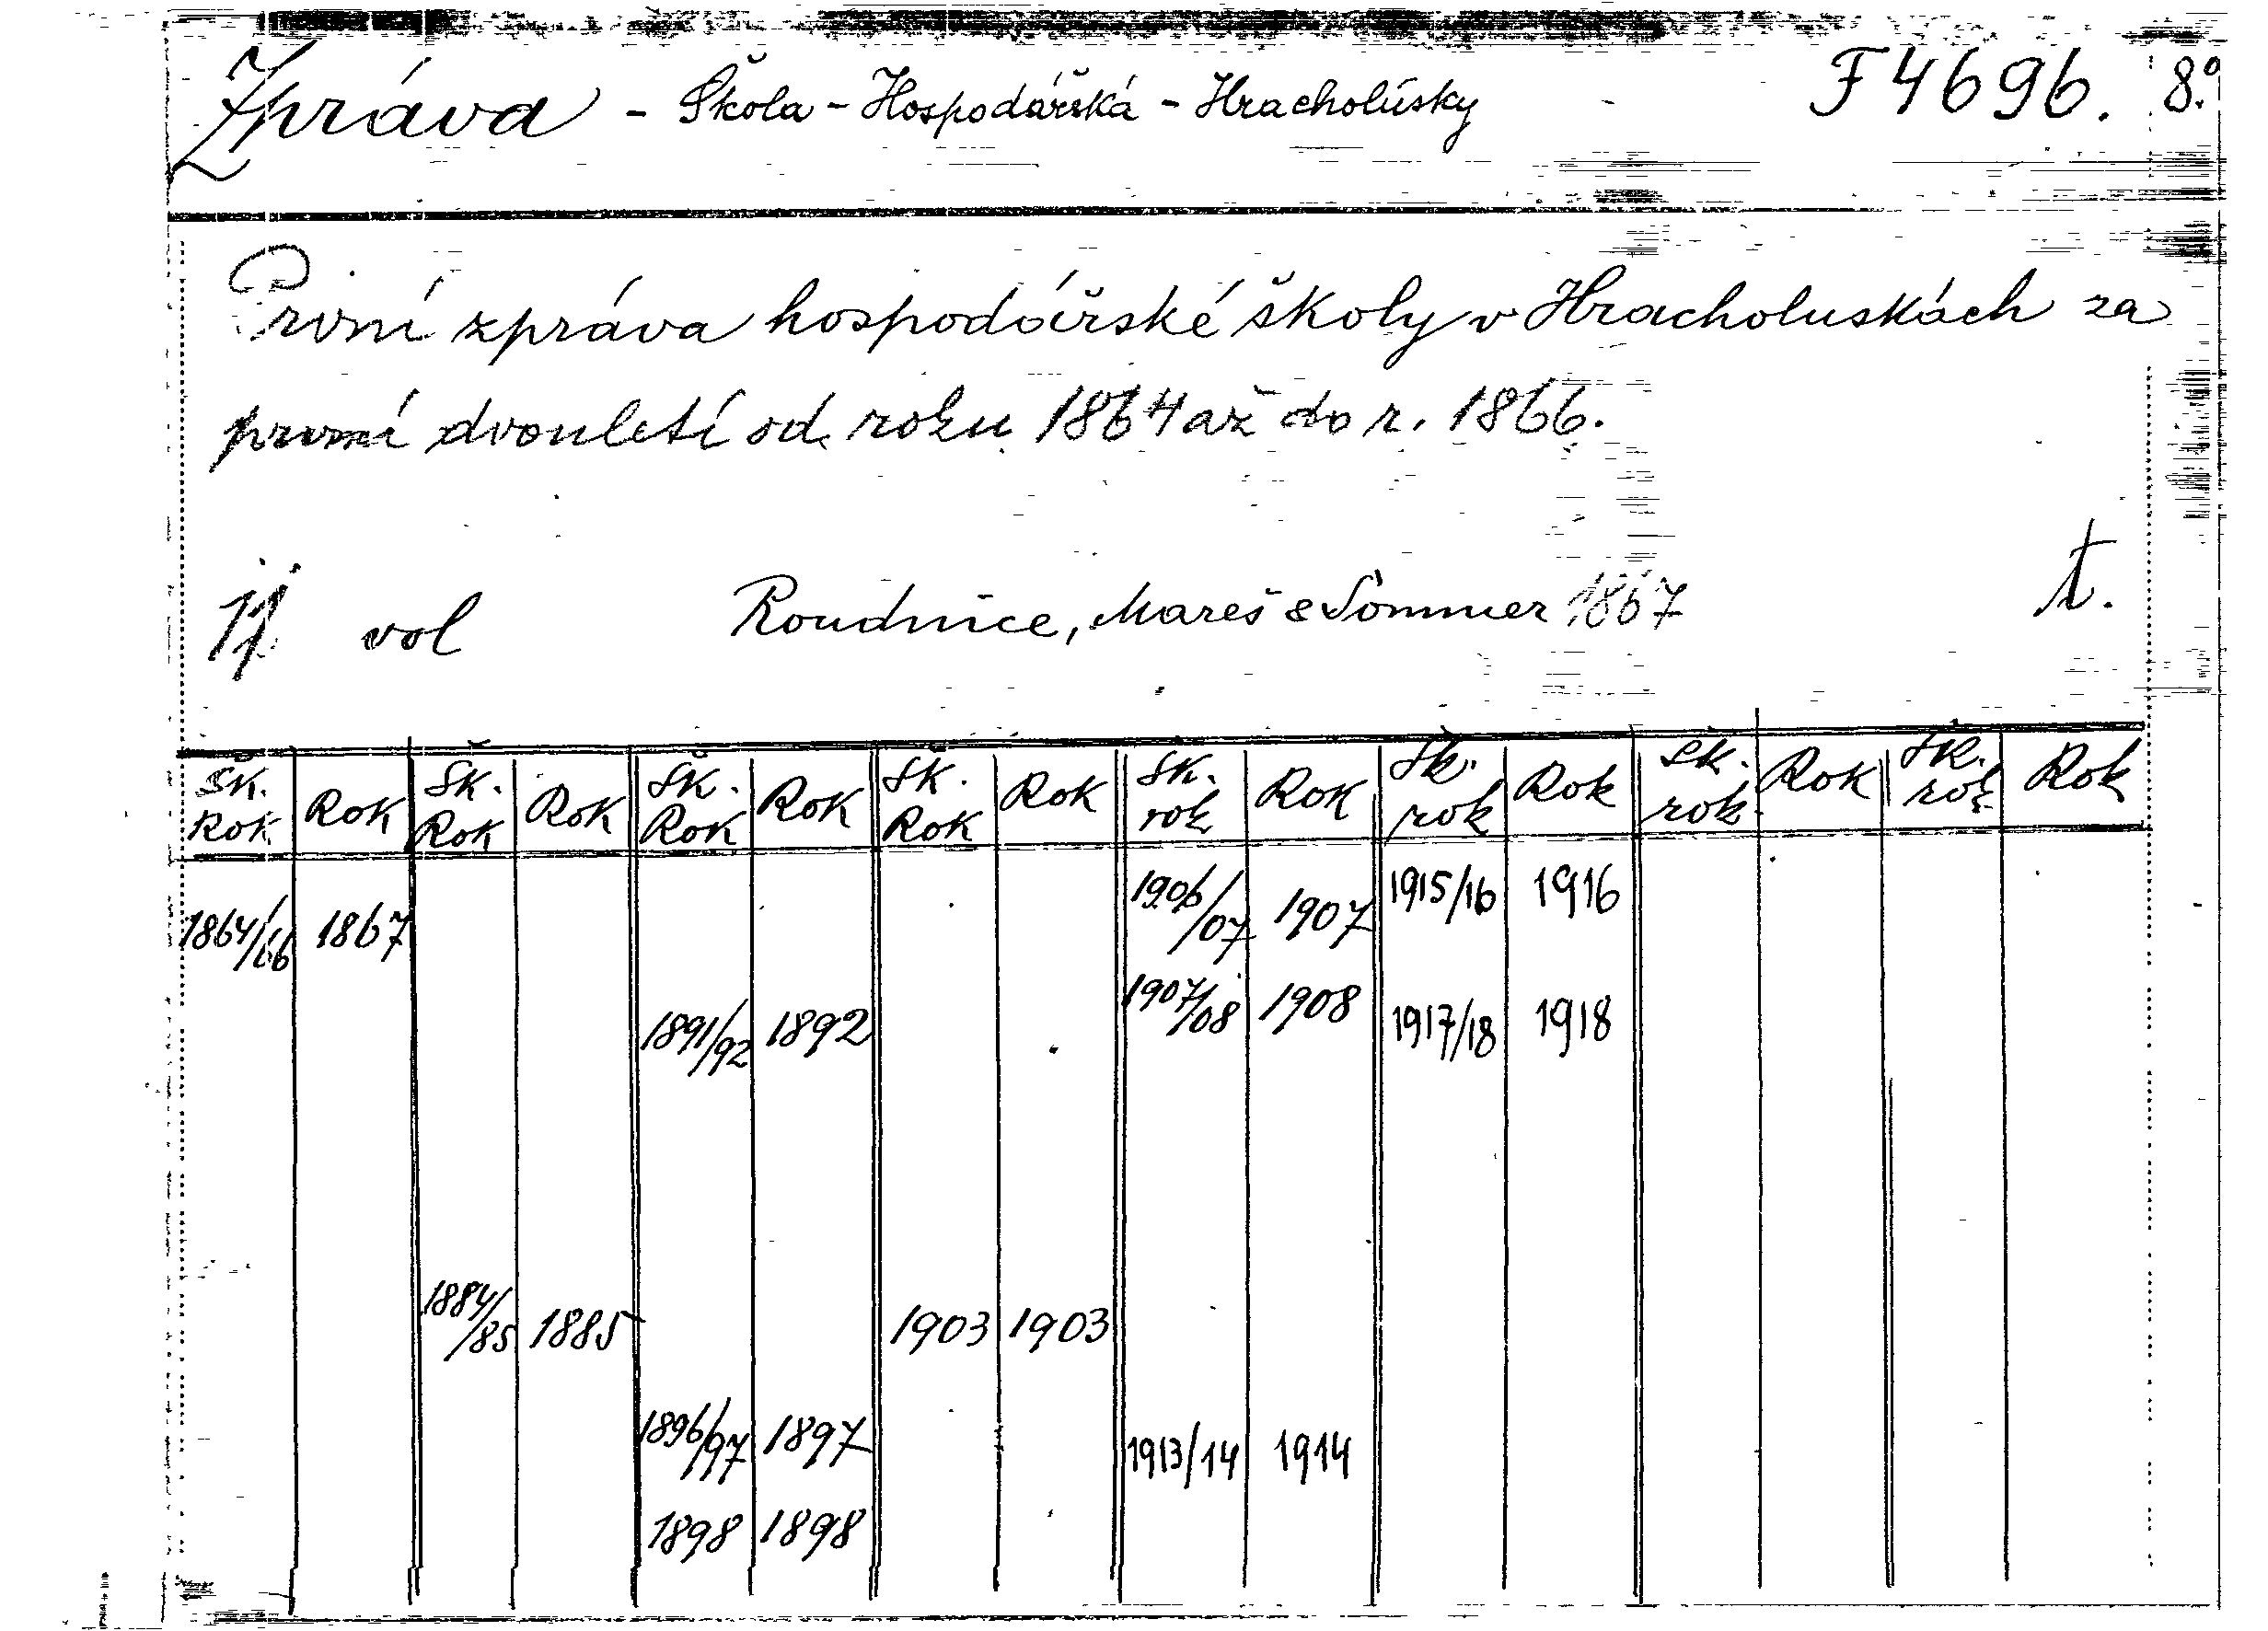 Zpráva - Škola - Hospodářská - Hracholúsky F 4696. 8°.
První zpráva hospodářské školy v Hracholuskách za
první dvouletí od roku 1864 až do r. 1866.
vol Roudnice, Mareš & Sommer 1867 t.
Šk. Rok Rok Šk. Rok Rok Šk. Rok Rok Šk. Rok Rok Šk. rok Rok Šk. rok Rok Šk. rok Rok Šk. rok Rok
1906/07 1907 1915/16 1916
1864/66 1867
1891/92 1892 1907/08 1908 1917/18 1918
1884/85 1885 1903 1903
1896/97 1897 1913/14 1914
1898 1898